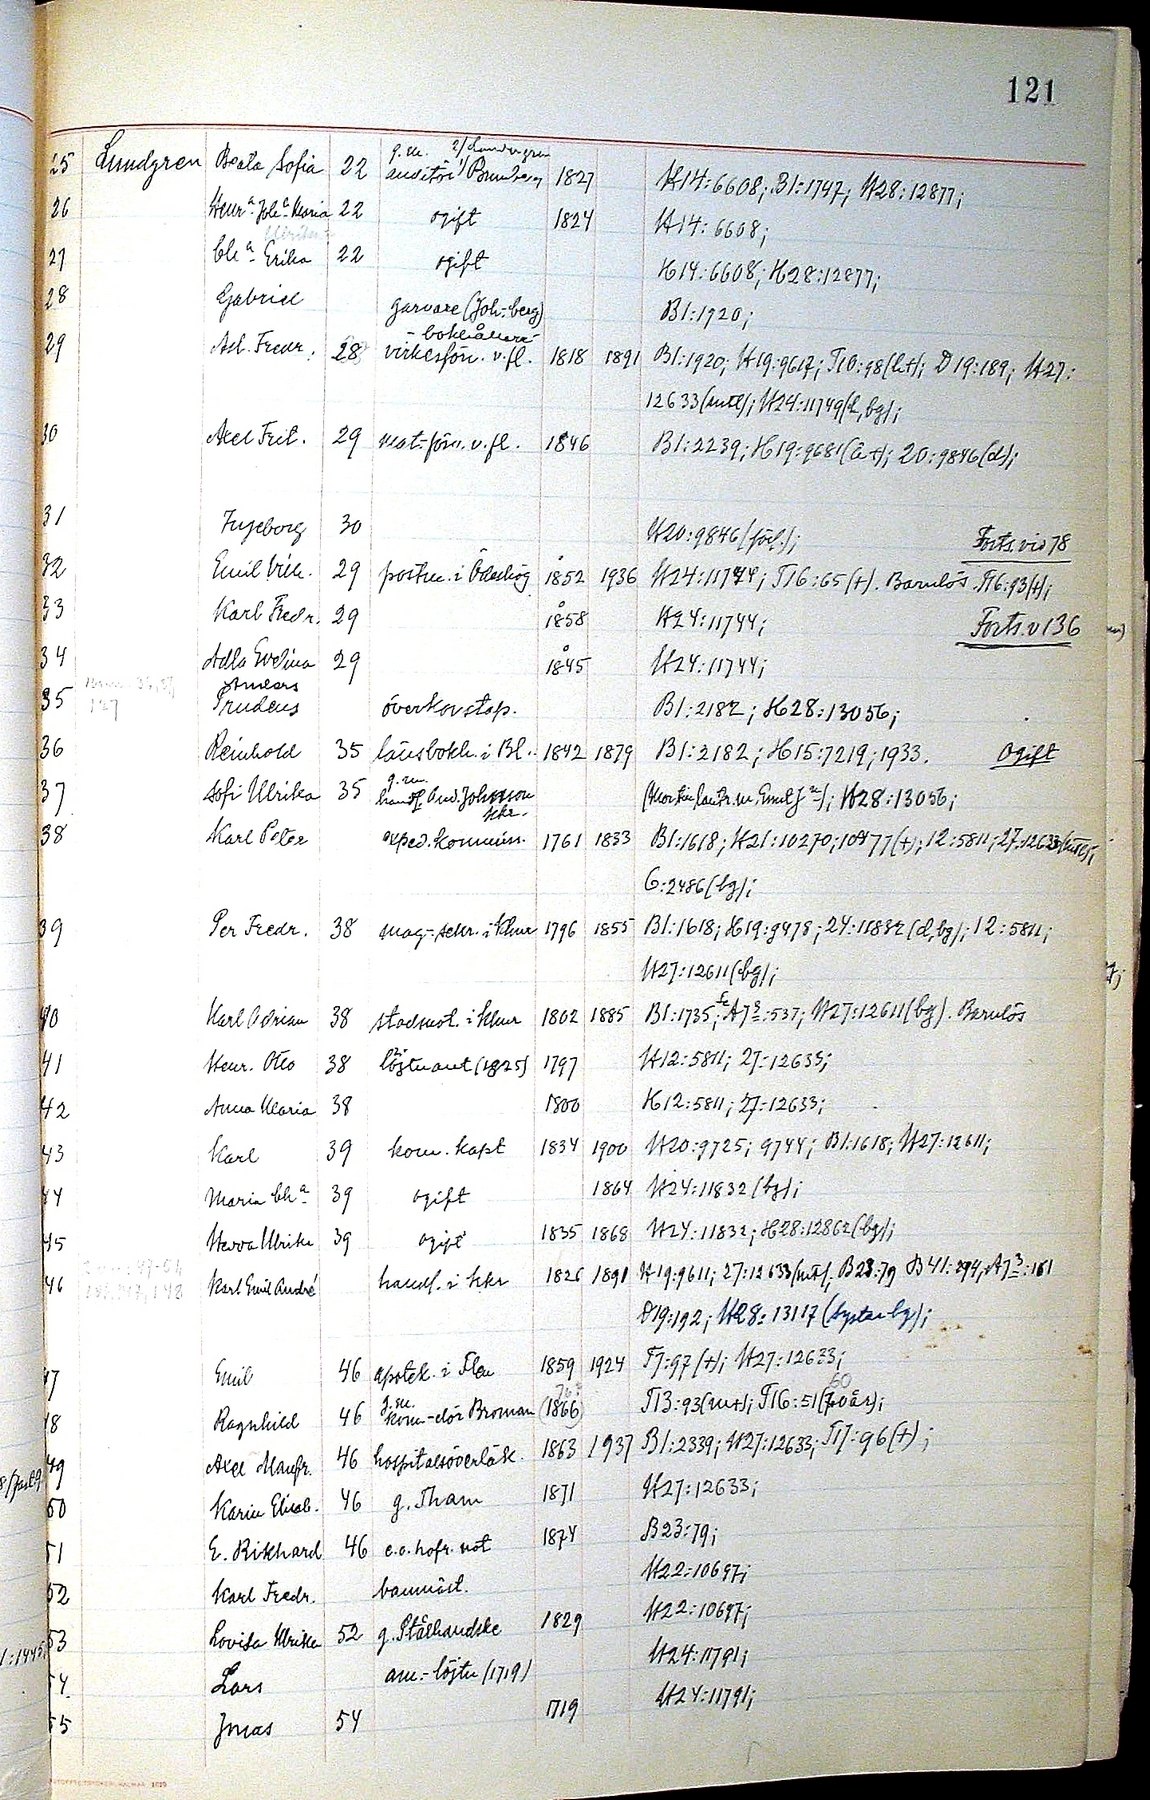 121
25 Lundgren Beata Sofia 22 g.m. 2) Lundgren auditör 1) 1827 H14:6608; B1:1747; H28:12877;
26 Henr:a Joh:a Maria 22 ogift 1824 H14:6608;
Ulrika
27 Ch:a Erika 22 ogift H14:6608; H28:12877;
28 Gabriel garvare (Joh:berg) B1:1920;
29 Ad. Fredr. 28 bokhållare virkesför. v. fl. 1818 1891 B1:1920; H19:9617; T10:98(h+); D19:189; H27:
12633(mtl); H24:11749(d,bg);
30 Axel Frit. 29 mat-förv. v. fl. 1846 B1:2239; H19:9681(å+); 20:9846(d);
31 Ingeborg 30 H20:9846(föd.); Forts. vid 78
32 Emil Vilh. 29 postm. i Ödeshög 1852 1936 H24:11744; T16:65(+). Barnlös. T16:93(+);
33 Karl Fredr. 29 1858 H24:11744; Forts. v 136
34 Adla Evelina 29 1845 H24:11744;
35 127 Anders Prudens överkonstap. B1:2182; H28:13056;
36 Reinhold 35 länsbokh. i Bl. 1842 1879 B1:2182; H15:7219; 1933. Ogift
37 Sofi Ulrika 35 g.m. handl. And. Johnsson H28:13056;
38 Karl Peter exped. kommiss. 1761 1833 B1:1618; H21:10270; 10477(+); 12:5811; 27:12633(mtl);
6:2486(bg);
39 Per Fredr. 38 mag-sekr. i Khmr 1796 1855 B1:1618; H19:9478; 24:11832(d,bg); 12:5811;
H27:12611(bg);
40 Karl Adrian 38 stadsnot. i Khmr 1802 1885 B1:1735; A7:537; H27:12611(bg). Barnlös
41 Henr. Otto 38 löjtnant (1825) 1797 H12:5811; 27:12633;
42 Anna Maria 38 1800 H12:5811; 27:12633;
43 Karl 39 kom. kapt 1834 1900 H20:9725; 9744; B1:1618; H27:12611;
44 Maria Ch:a 39 ogift 1864 H24:11832(bg);
45 Hedda Ulrika 39 ogift 1835 1868 H24:11832; H28:12862(bg);
46 Karl Emil André handl. i Khr 1826 1891 H19:9611; 27:12633(mtl). B23:79 B41:294; A7:161
D19:192; H28:13117(syster bg);
47 Emil 46 apotek. i Flen 1859 1924 T7:97(+); H27:12633;
48 Ragnhild 46 g.m. kom-dör Broman (1866) T13:93(m+); T16:51(70 år);
49 Axel Manfr. 46 hospitalsöverläk. 1863 1937 B1:2339; H27:12633; T17:96(+);
50 Karin Elisab. 46 g. Tham 1871 H27:12633;
51 E. Rikhard 46 e.o. hofr. not 1874 B23:79;
52 Karl Fredr. banmäst. H22:10697;
53 Lovisa Ulrika 52 g. Stålhandske 1829 H22:10697;
54 Lars am.-löjtn (1719) H24:11791;
55 Jonas 54 1719 H24:11791;